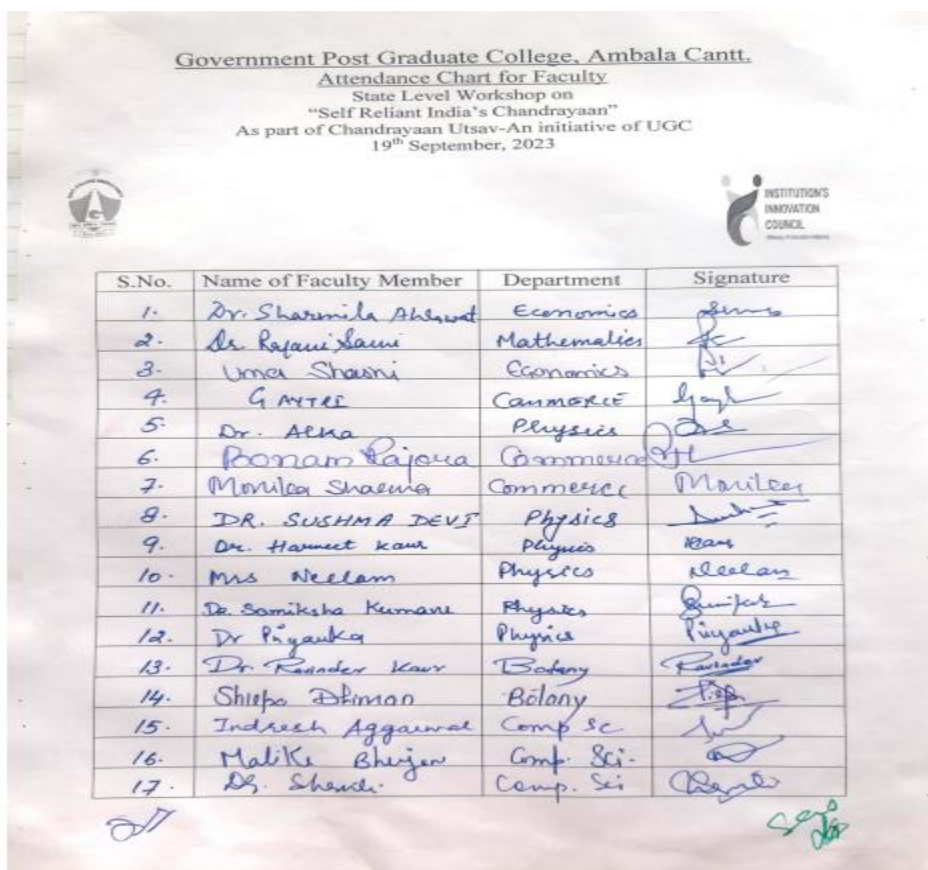 Government Post Graduate College, Ambala Cantt.
Attendance Chart for Faculty
State Level Workshop on
"Self Reliant India's Chandrayaan"
As part of Chandrayaan Utsav-An initiative of UGC
19th September, 2023
INSTITUTION'S
INNOVATION
COUNCIL
S.No. Name of Faculty Member Department Signature
1. Dr. Sharmila Ahlawat Economics
2. Dr Rajani Saini Mathematics
3. Uma Economics
4. GAYTRI COMMERCE
5. Dr. Alka Physics
6. Poonam Rajora Commerce
7. Monika Sharma Commerce Monika
8. DR. SUSHMA DEVI Physics
9. Dr. Harneet Kaur Physics Kaur
10. Mrs Neelam Physics Neelam
11. Dr. Samiksha Physics
12. Dr Priyanka Physics Priyanka
13. Dr. Ravinder Kaur Botany Ravinder
14. Dhiman Botany
15. Indresh Aggarwal Comp Sc
16. Comp. Sci.
17. Comp. Sci